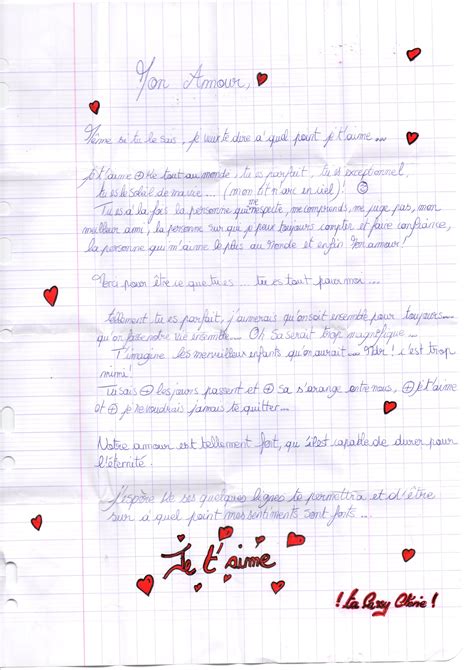 Mon Amour,
Même si tu le sais, je veux te dire à quel point je t'aime...
je t'aime ⊕ que tout au monde, tu es parfait, tu es exceptionnel,
tu es le soleil de ma vie... (mon tit n'arc en ciel)!
Tu es à la fois la personne qui me respecte, me comprends, me juge pas, mon
meilleur ami, la personne sur que je peux toujours compter et faire confiance,
la personne qui m'aime le plus au monde et enfin mon amour!
Merci pour être ce que tu es ... tu es tout pour moi...
tellement tu es parfait, j'aimerais qu'on soit ensemble pour toujours...
qu'on fasse notre vie ensemble... Oh sa serait trop magnifique...
T'imagine les merveilleux enfants qu'on aurait... c'est trop
mimi!
Tu sais ⊕ les jours passent et ⊕ sa s'arange entre nous, ⊕ je t'aime
et ⊕ je voudrais jamais te quitter...
Notre amour est tellement fort, qu'il est capable de durer pour
l'éternité.
j'espère que ses quelques lignes te permettra et d'être
sur à quel point mes sentiments sont forts...
Je t'aime
! ta !